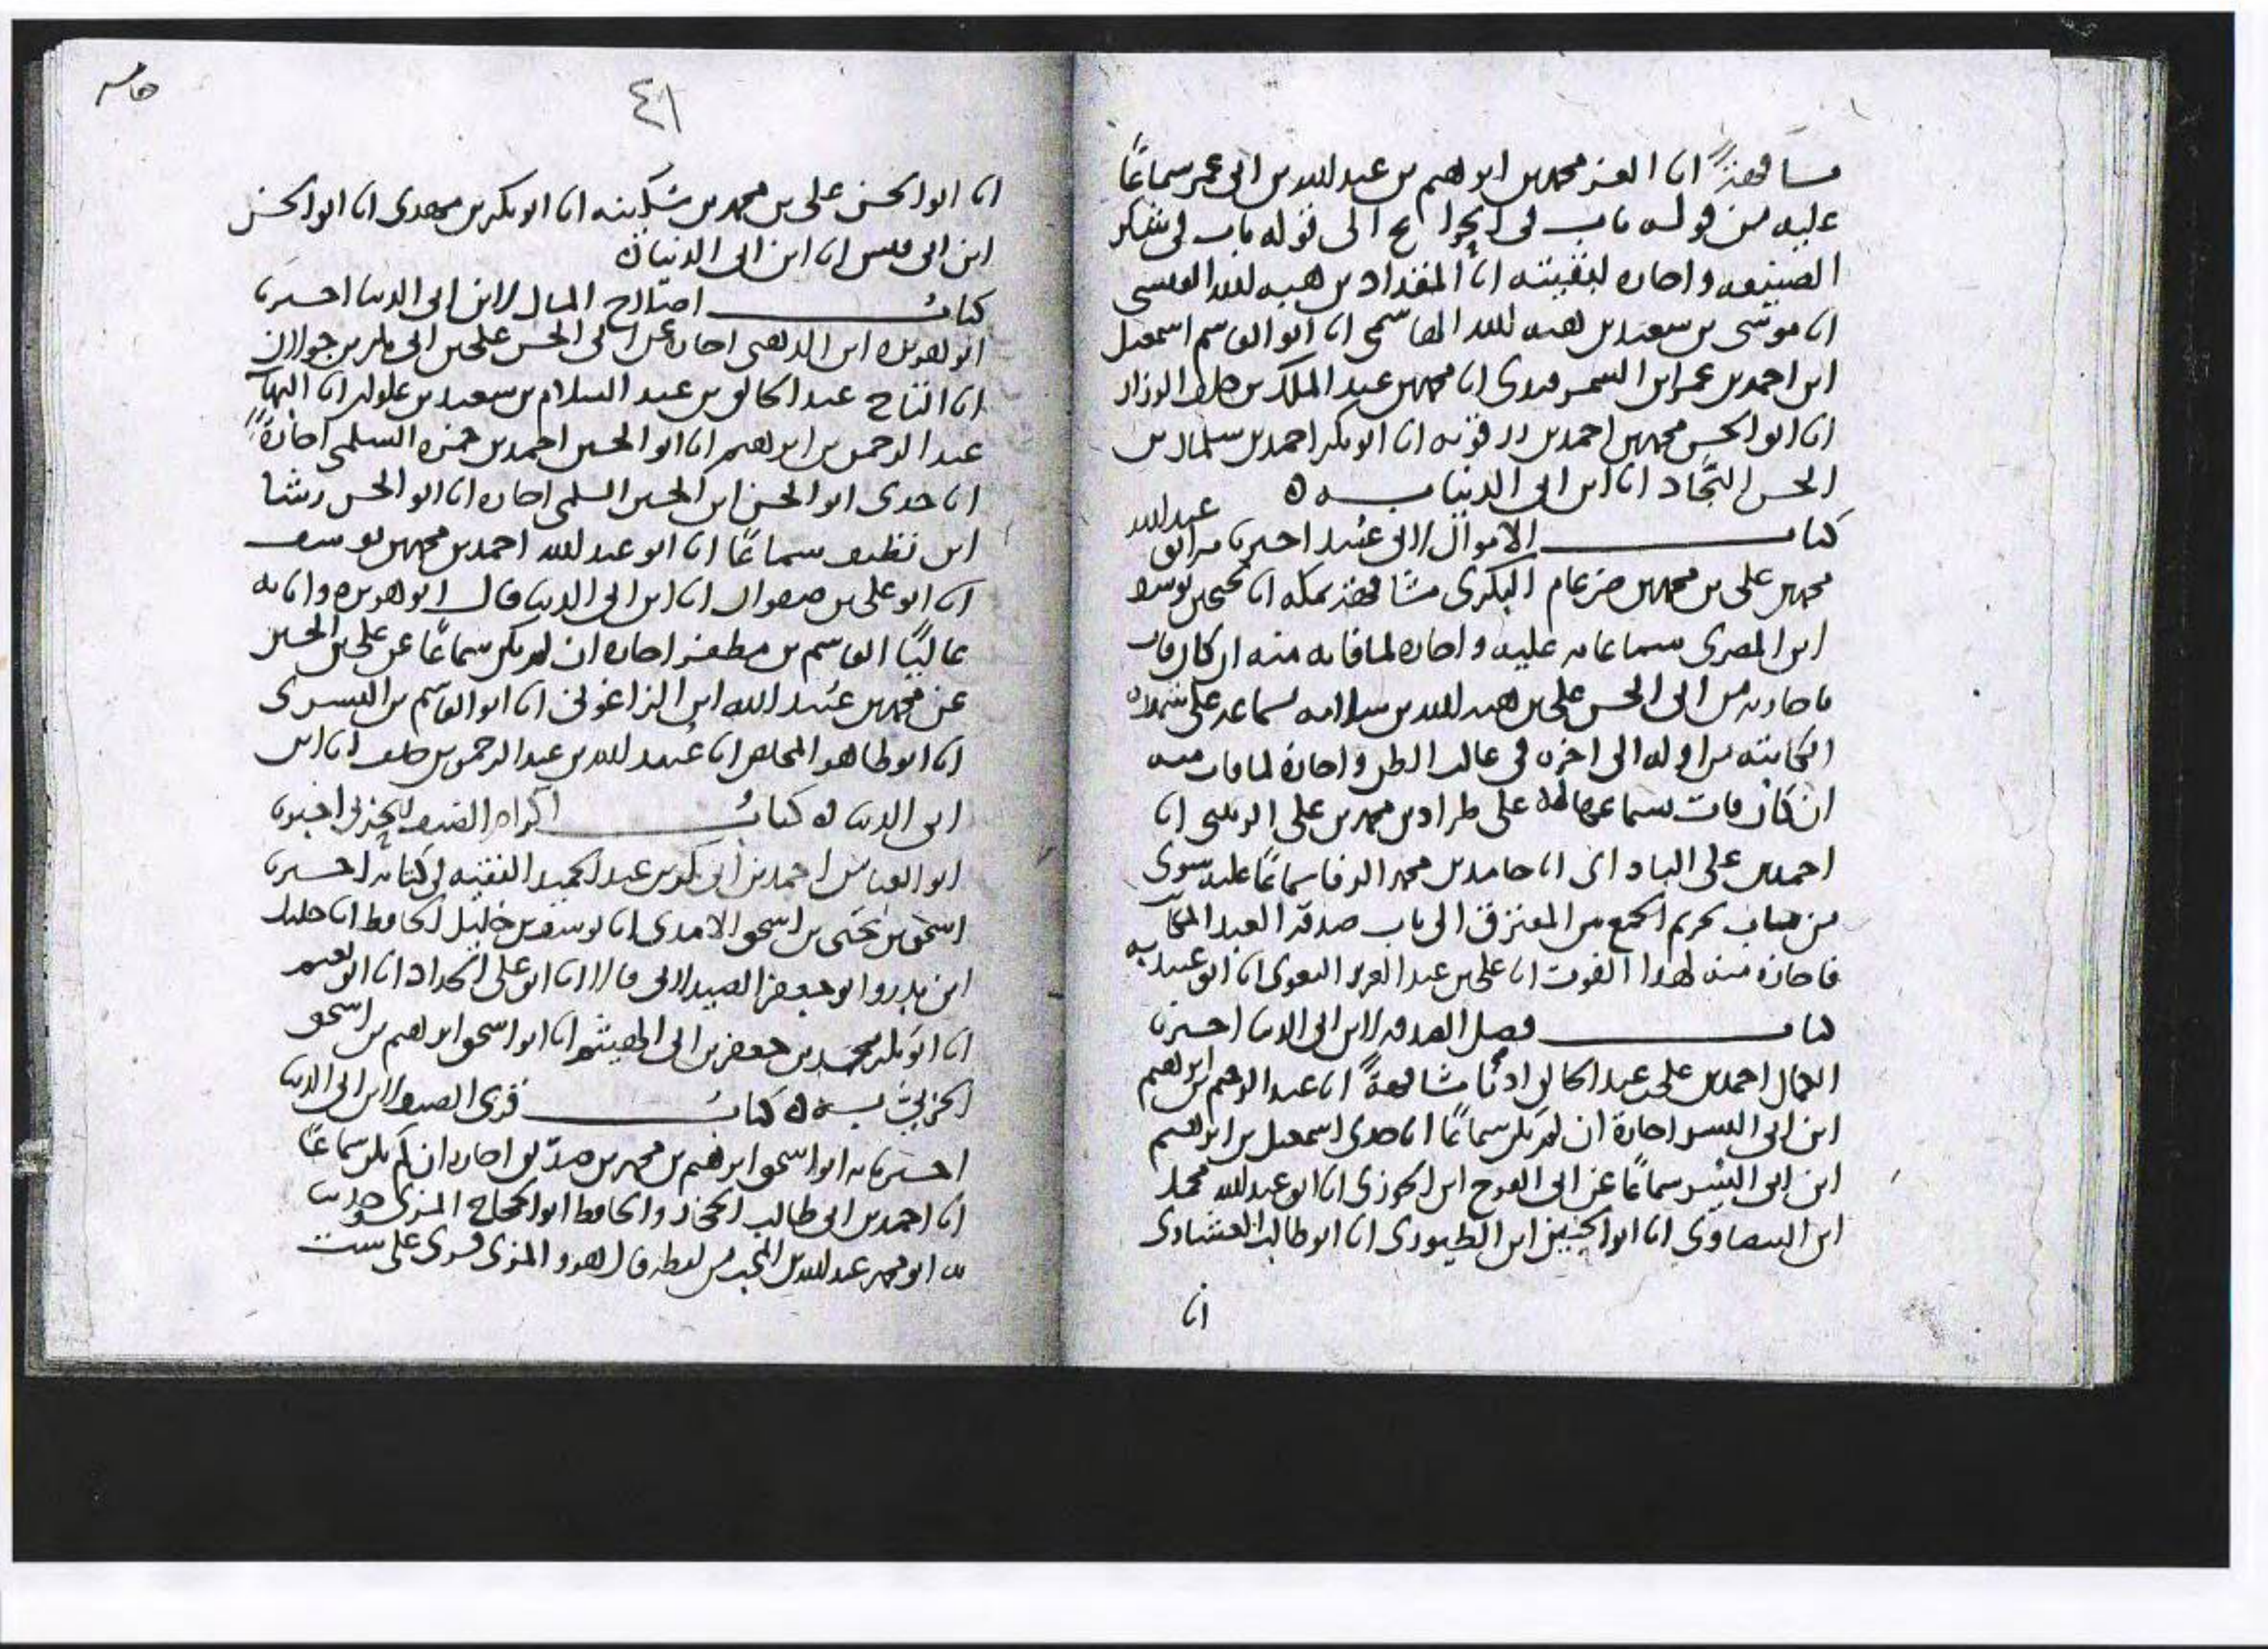 مشافهة انا العز محمد بن ابراهيم بن عبد الله بن ابى عمر سماعًا
عليه من قوله باب فى الحوائج الى قوله باب فى شكر
الصنيعه واجازه لبقيته انا المقداد بن هبه الله القيسى
انا موسى بن سعيد بن هبه الله الهاشمى انا ابو القاسم اسمعيل
ابن احمد بن عمر ابن السمرقندى انا محمد بن عبد الملك بن الوزان
انا ابو الحسن محمد بن احمد بن رزقويه انا ابو بكر احمد بن سلمان بن
الحسن النجاد انا ابن ابى الدنيا به ه
كتاب الاموال لابى عبيد اخبرنا به ابو عبد الله
محمد بن على بن محمد بن ضرغام البكرى مشافهة بمكه انا يحيى بن يوسف
ابن المصرى سماعا عليه واجازه لما فاته منه ان كان فات
باجازته من ابى الحسن على بن هبه الله بن سلامه بسماعه على شهده
الكاتبه من اوله الى اخره فى غالب الظن واجازة لما فات منه
ان كان فات بسماعها له على طراد بن محمد بن على الزينبى انا
احمد بن على البادا انا حامد بن محمد الرفا سماعًا عليه سوى
من باب تحريم الجمع بين المفترق الى باب صدقة العبد المكاتب
فاجازه منه لهذا الفوت انا على بن عبد العزيز البغوى انا ابو عبيد به
كتاب فضل الصدقه لابن ابى الدنيا اخبرنا
الجمال احمد بن على بن عبد الخالق اذنًا مشافهةً انا عبد الرحيم بن ابراهيم
ابن ابى اليسر اجازة ان لم يكن سماعًا انا جدى اسمعيل بن ابراهيم
ابن ابى اليسر سماعًا عن ابى الفرج ابن الجوزى انا ابو عبد الله محمد
ابن البيضاوى انا ابو الحسين ابن الطيورى انا ابو طالب العشارى
انا
٤١
انا ابو الحسن على بن محمد بن سكينه انا ابو بكر بن مهدى انا ابو الحسن
ابن ابى قيس انا ابن ابى الدنيا ه
كتاب اصلاح المال لابن ابى الدنيا اخبرنا
ابو هريره ابن الذهبى اجازة عن ابى الحسن على بن ابى بكر بن
انا التاج عبد الخالق بن عبد السلام بن سعيد بن علوان انا البهاء
عبد الرحمن بن ابراهيم انا ابو الحسين احمد بن حمزه السلمى اجازةً
انا جدى ابو الحسن ابن الحسن السلمى اجازه انا ابو الحسن رشا
ابن نظيف سماعًا انا ابو عبد الله احمد بن محمد بن يوسف
انا ابو على بن صفوان انا ابن ابى الدنيا قال ابو هريره وانا به
عاليًا القاسم بن مظفر اجازه ان لم يكن سماعًا عن على بن الحسين
عن محمد بن عبيد الله ابن الزاغونى انا ابو القاسم بن البسرى
انا ابو طاهر المخلص انا عبيد الله بن عبد الرحمن بن خلف انا ابن
ابى الدنيا ه كتاب اكرام الضيف للحربى اخبرنا
ابو العباس احمد بن ابى بكر بن عبد الحميد الفقيه فى كتابه اخبرنا
اسحق بن يحيى بن اسحق الامدى انا يوسف بن خليل الحافظ انا خليل
ابن بدر وابو جعفر الصيدلانى قالا انا ابو على الحداد انا ابو نعيم
انا ابو بكر محمد بن جعفر بن ابى الهيثم انا ابو اسحق ابراهيم بن اسحق
الحربى به ه كتاب قرى الضيف لابن ابى الدنيا
اخبرنا به ابو اسحق ابراهيم بن محمد بن صديق اجازه ان لم يكن سماعًا
انا احمد بن ابى طالب الحجار والحافظ ابو الحجاج المزى
ابو محمد عبد الله بن المحب من لفظه قال هو والمزى قرى على ست